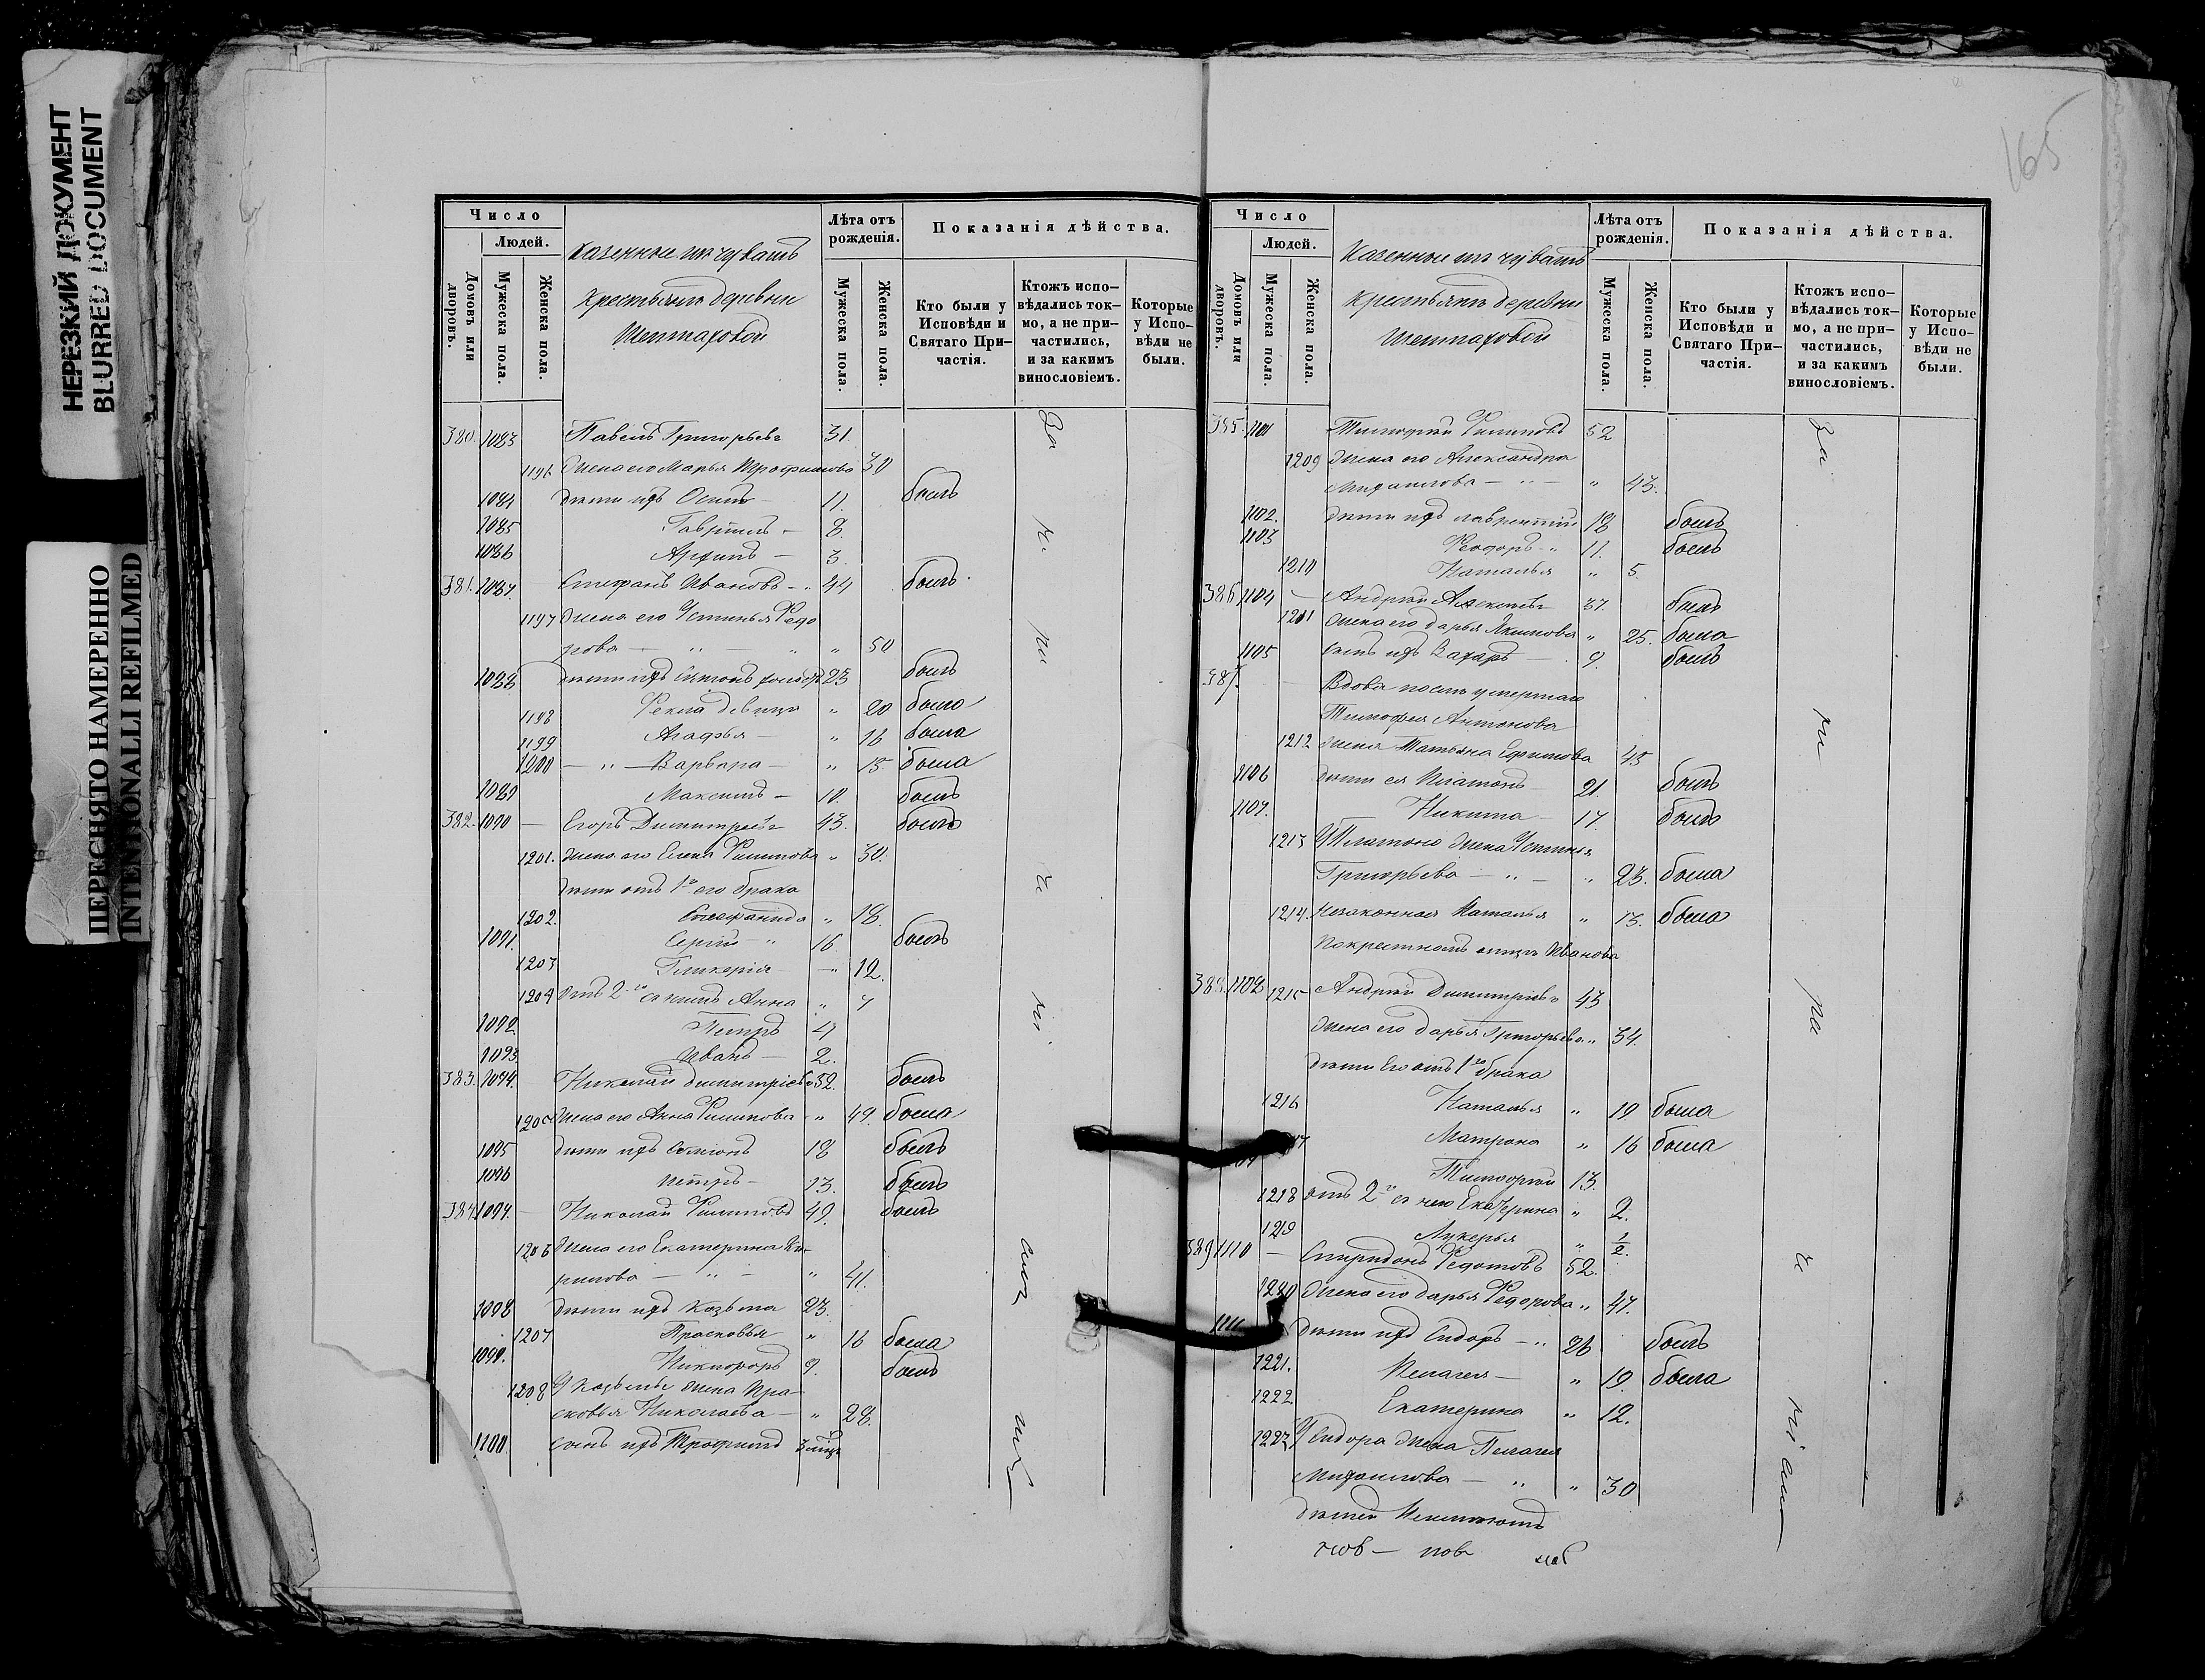 НЕРЕЗКИЙ ДОКУМЕНТ
BLURRED DOCUMENT
ПЕРЕСНЯТО НАМЕРЕННО
INTENTIONALLI REFILMED
Число
Людей.
Домовъ или дворовъ.
Мужеска пола.
Женска пола.
Казенные изъ чувашъ
крестьянъ деревни
Шептаховой
Лѣта отъ рожденія.
Мужеска пола.
Женска пола.
Показанія дѣйства.
Кто были у Исповѣди и Святаго При-частія.
Ктожъ испо-вѣдались ток-мо, а не при-частились, и за какимъ винословіемъ.
Которые у Испо-вѣди не были.
380. 1083 Павелъ Григорьевъ 31.
1196 Жена его Марья Трофимова 30
1084 дѣти ихъ Осипъ — 11. былъ
1085 Гавріилъ — 8.
1086 Архипъ — 3.
381. 1087. Стефанъ Ивановъ — 44 былъ
1197 Жена его Устинья Ѳедо
рова — " — " " 50
1088 дѣти ихъ Симонъ холостъ 23 былъ
1198 Ѳекла дѣвица " 20 была
1199 Агафья — " 16 была
1200 — " — Варвара — " 15. была
1089 Максимъ — 10. былъ
382. 1090 — Егоръ Димитріевъ 43. былъ
1201. Жена его Елена Филипова " 30.
дѣти отъ 1го его брака
1202. Степанида " 18.
1091. Сергій — " 16 былъ
1203 Гликерія — " 12.
1204 Отъ 2го съ нимъ Анна " 7
1092 Петръ 4
1093 Иванъ — 2.
383. 1094. Николай Димитріевъ 52. былъ
1205 Жена его Анна Филипова " 49. была
1095 дѣти ихъ Семіонъ 18 былъ
1096 Петръ — 13. былъ
384 1097. — Николай Филиповъ 49. былъ
1206 Жена его Екатерина Ки-
рилова — " — " 41.
1098 дѣти ихъ Козьма 23.
1207 Прасковья " 16 была
1099. Никифоръ 9. былъ
1208 У Козьмы жена Пра-
сковья Николаева — " 28.
1100 сынъ ихъ Трофимъ 3 мѣц
165
Число
Людей.
Домовъ или дворовъ.
Мужеска пола.
Женска пола.
Казенные изъ чувашъ
крестьянъ деревни
Шептаховой
Лѣта отъ рожденія.
Мужеска пола.
Женска пола.
Показанія дѣйства.
Кто были у Исповѣди и Святаго При-частія.
Ктожъ испо-вѣдались ток-мо, а не при-частились, и за какимъ винословіемъ.
Которые у Испо-вѣди не были.
385. 1101 Тимофей Филиповъ 52
1209 Жена его Александра
Михаилова — " — " 43.
1102. дѣти ихъ Лаврентій 18 былъ
1103 Ѳеодоръ " 11. былъ
1210 Наталья " 5.
386 1104 — Андрей Алексѣевъ 27. былъ
1211 Жена его Дарья Якимова " 25. была
1105 сынъ ихъ Захаръ — 9. былъ
387. Вдова послѣ умершаго
Тимофея Антонова
1212 жена Татьяна Ефимова 45
1106 дѣти ея Платонъ 21. былъ
1107. Никита — 17. былъ
1213 У Платона жена Устинья
Григорьева — " — " 23. была
1214. Незаконная Наталья " 13. была
По крестномъ отцѣ Иванова
388. 1108 1215 Андрей Димитріевъ 43
Жена его Дарья Григорьева " 34.
дѣти его отъ 1го брака
1216 Наталья " 19 была
Матрона " 16 была
Тимофей 13.
1218 отъ 2го съ нею Екатерина " 2.
1219 Лукерья " 1/2.
389 1110 — Спиридонъ Ѳедотовъ 52.
1220 Жена его Дарья Ѳедорова " 47.
1111 дѣти ихъ Сидоръ — " 26 былъ
1221. Пелагея — " 19. была
1222 Екатерина " 12.
1223 У Сидора жена Пелагея
Михаилова — " " 30
дѣтей Неимѣютъ